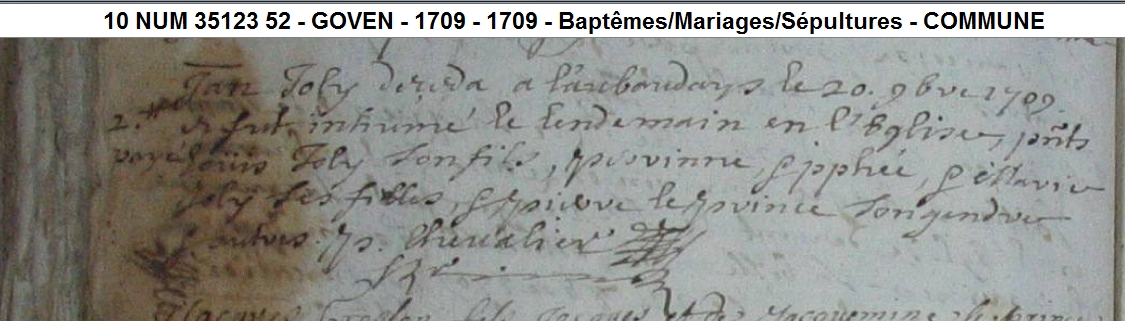 10 NUM 35123 52 - GOVEN - 1709 - 1709 - Baptêmes/Mariages/Sépultures - COMMUNE
Jan Joly déceda a le 20. 9bre 1709.
2. & fut inhumé le lendemain en l'Eglise, pñts
payé Louis Joly son fils, perrinne, & & Marie
Joly ses filles, & pierre le prince son gendre
& autres. p. Chevalier